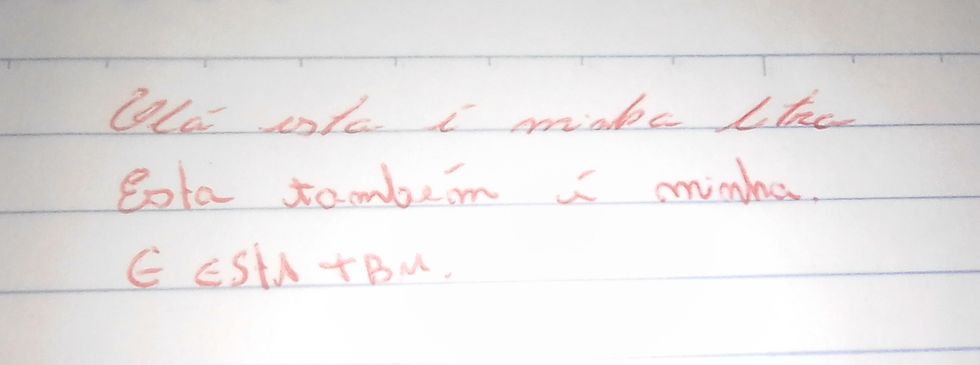 Olá esta é minha letra
Esta também é minha.
E ESTA TBM.